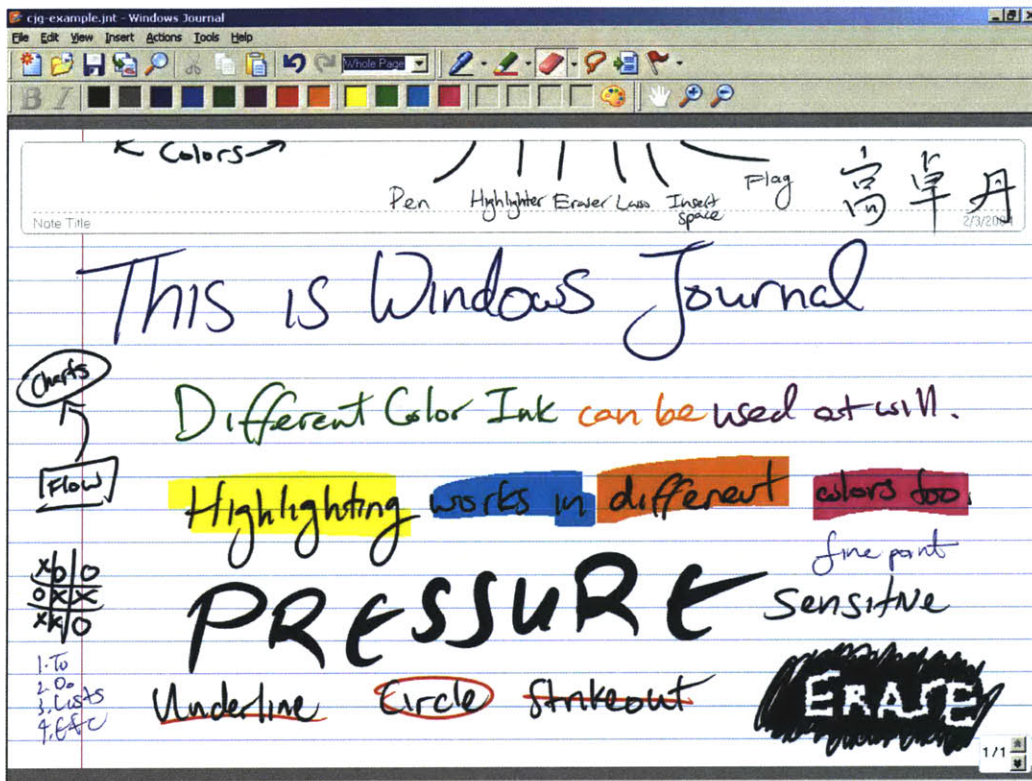 cjg-example.jnt - Windows Journal
File Edit View Insert Actions Tools Help
Whole Page
B I
← Colors →
Pen Highlighter Eraser Lasso Insert space Flag
高 卓 丹
Note Title
2/3/2004
This is Windows Journal
Charts
Different Color Ink can be used at will.
Flow
Highlighting works in different colors too.
fine point
X O O
O X X
X X O
PRESSURE sensitive
1. To
2. Do
3. Lists
4. Etc
Underline Circle Strikeout
ERASE
1/1